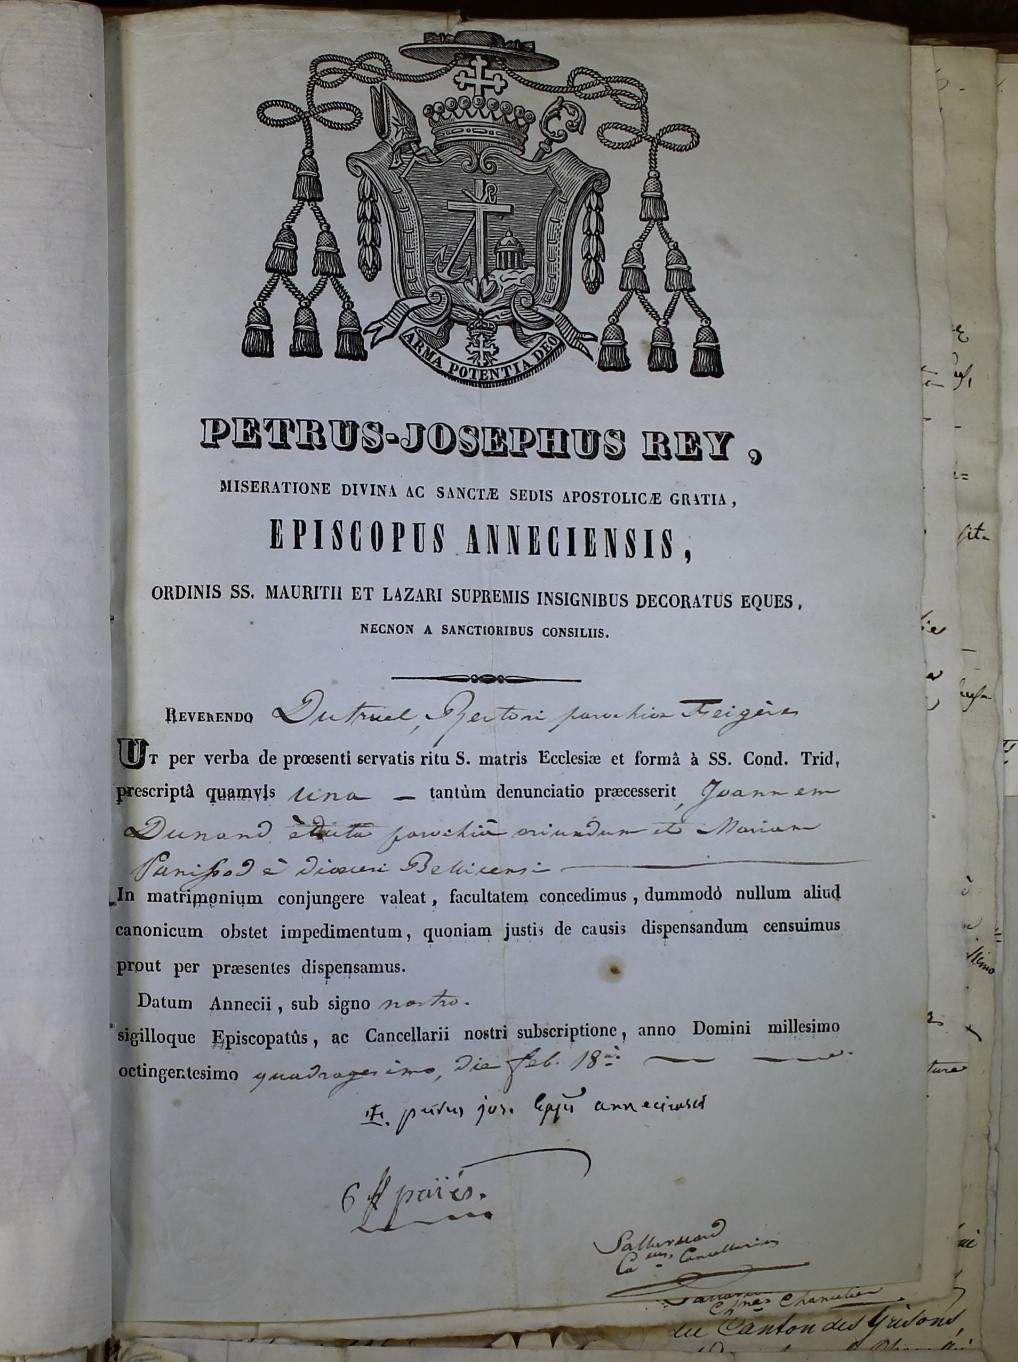 ARMA POTENTIA DEO
PETRUS-JOSEPHUS REY,
MISERATIONE DIVINA AC SANCTÆ SEDIS APOSTOLICÆ GRATIA,
EPISCOPUS ANNECIENSIS,
ORDINIS SS. MAURITII ET LAZARI SUPREMIS INSIGNIBUS DECORATUS EQUES,
NECNON A SANCTIORIBUS CONSILIIS.
REVERENDO Dutruel, Rectori parochiæ Feigères
UT per verba de prœsenti servatis ritu S. matris Ecclesiæ et formâ à SS. Cond. Trid,
prescriptâ quamvis una — tantùm denunciatio præcesserit, Joannem
Dunand è dicta parochiâ oriundum et Mariam
Panissod è diœcesi Bellicensi
In matrimonium conjungere valeat, facultatem concedimus, dummodò nullum aliud
canonicum obstet impedimentum, quoniam justis de causis dispensandum censuimus
prout per præsentes dispensamus.
Datum Annecii, sub signo nostro.
sigilloque Episcopatûs, ac Cancellarii nostri subscriptione, anno Domini millesimo
octingentesimo quadragesimo, die feb. 18â
petrus jos. Epus anneciensis
6 ff païés.
Cancellarius
du Canton des Grisons,